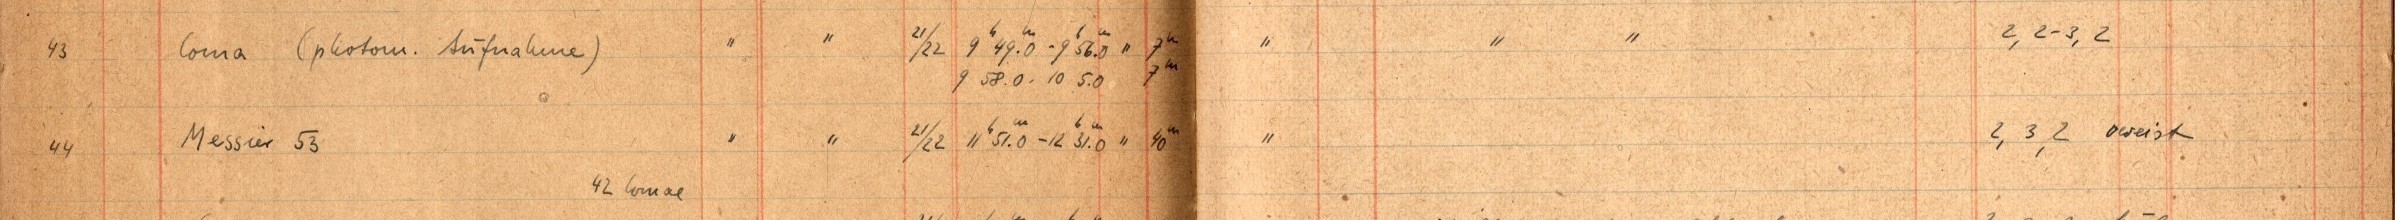 43 Coma (photom. Aufnahme) " " 21/22 9h 49.0m - 9h 56.0m " 7m " " " 2, 2-3, 2
9 58.0 - 10 5.0 7m
44 Messier 53 " " 21/22 11h 51.0m - 12h 31.0m " 40m " 2, 3, 2
42 Comae